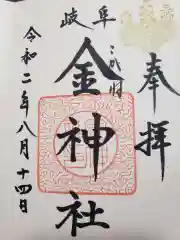 奉拝
岐阜
金神社
令和二年八月十四日